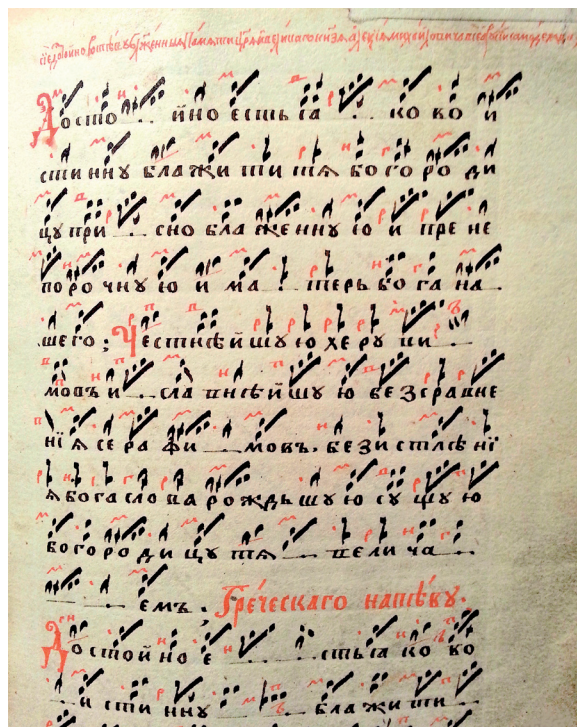 До сто йно есть ꙗ ко во и
сти нну бла жи ти тѧ бо го ро ди
цу при сно бла же нну ю и пре не
по ро чну ю и ма терь бо га на
шего; Честнѣйшую херу ви
мовъ и сла внѣйшую без сравне
нїѧ сера фи мовъ. без истлѣнї
ѧ бога слова рождьшую сущую
богородицу тѧ вели ча
емъ.
Греческаго напѣву.
Достойно е сть ꙗ ко во
и сти нну бла жи ти